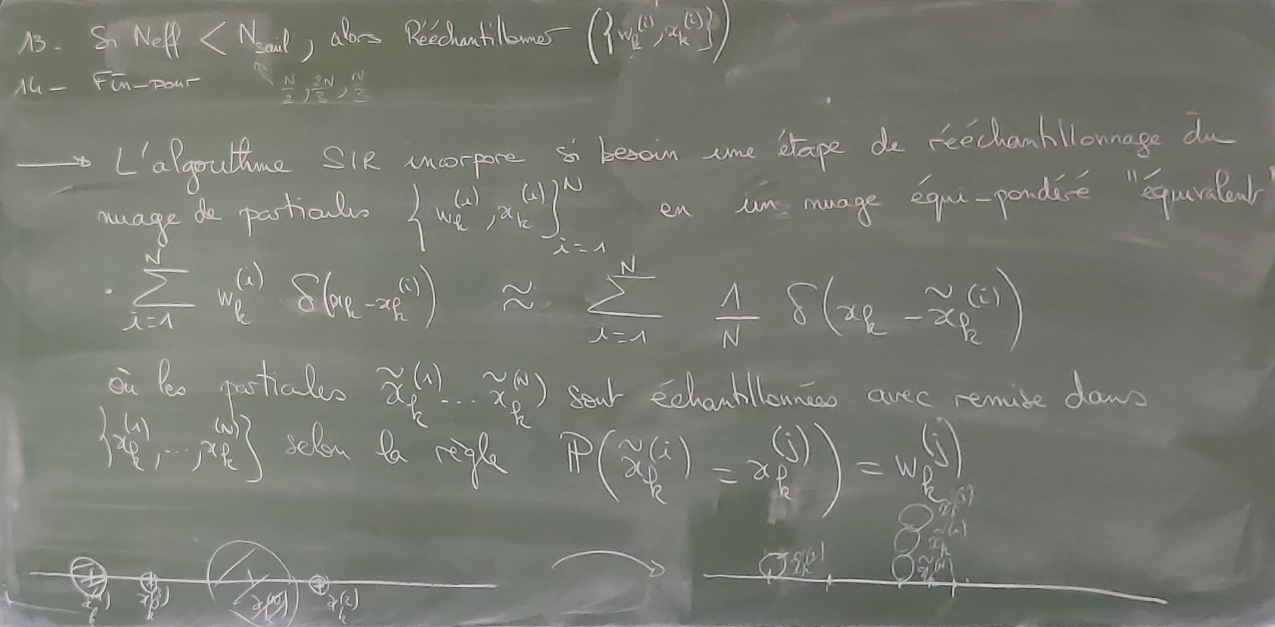 13- Si Neff < N_seuil, alors Rééchantillonner ({w_k^(i), x_k^(i)})
14- Fin-pour N/2, 2N/3, N/3
→ L'algorithme SIR incorpore si besoin une étape de rééchantillonnage du
nuage de particules {w_k^(i), x_k^(i)}_{i=1}^N en un nuage équi-pondéré "équivalent"
· ∑_{i=1}^N w_k^(i) δ(x_k - x_k^(i)) ≈ ∑_{i=1}^N 1/N δ(x_k - x̃_k^(i))
où les particules x̃_k^(1) ... x̃_k^(N) sont échantillonnées avec remise dans
{x_k^(1), ..., x_k^(N)} selon la règle ℙ(x̃_k^(i) = x_k^(j)) = w_k^(j)